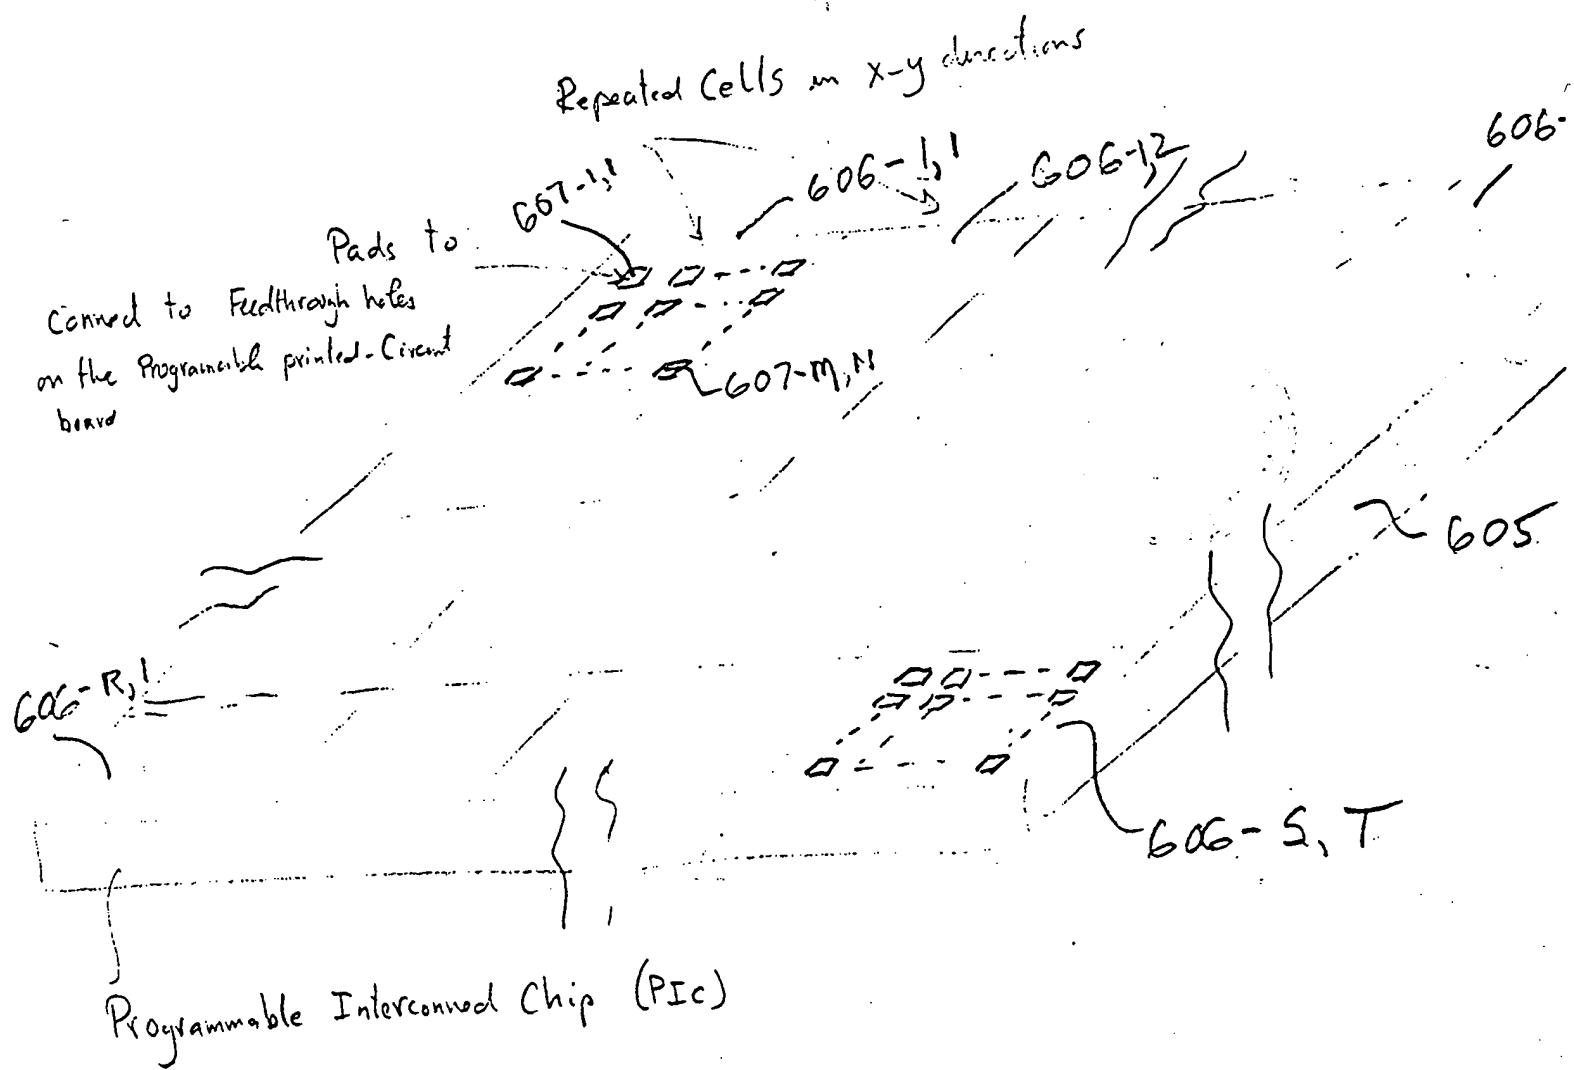 Repeated Cells in x-y directions
606-
607-1,1
606-1,1
606-1,2
Pads to
Connect to Feedthrough holes
on the Programable printed-Circuit
board
607-M,N
605
606-R,1
606-S,T
Programmable Interconnect Chip (PIC)